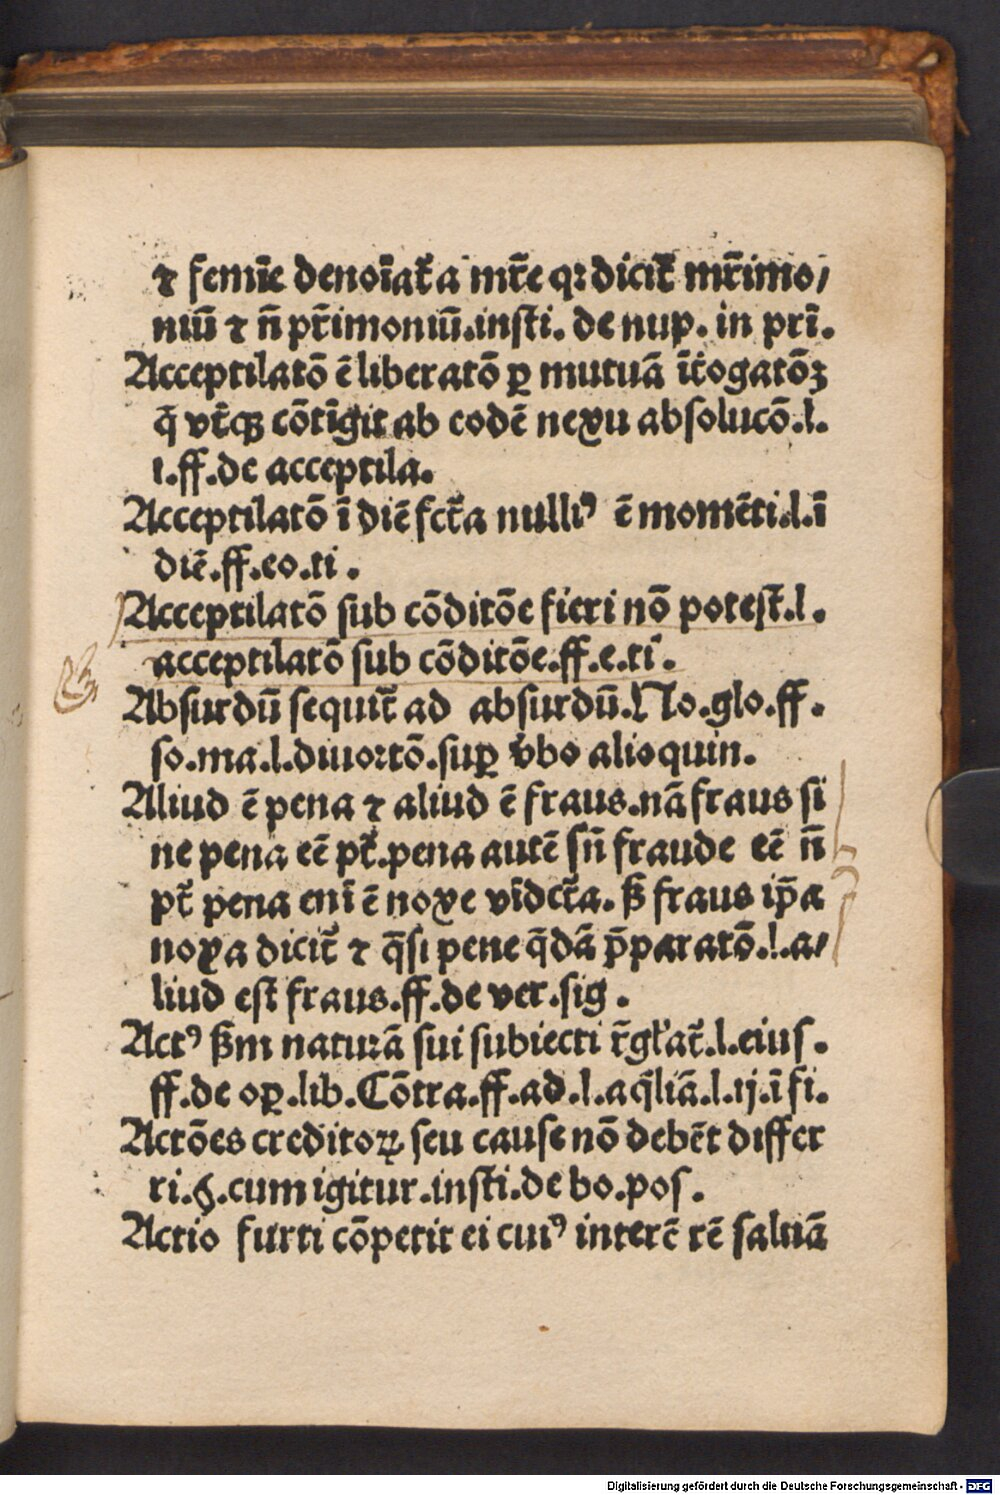 ⁊ femīe denoīat᷑ a mr̄e qꝛ dicit᷑ mr̄imo/
niū ⁊ n̄ pr̄imoniū.insti. de nup. in pri̅.
Acceptilatō ē liberatō ꝑ mutuā īt̄ogatōꝫ
q̄ vt̄qꝫ cōtīgit ab eodē nexu absolucō.l.
ı.ff.de acceptila.
Acceptilatō ī diē fct̄a nulliꝰ ē momēti.l.ī
diē.ff.eo.ti.
Acceptilatō sub cōditōe fieri nō potest̄.l.
acceptilatō sub cōditōe.ff.e.ti.
Absurdū sequit᷑ ad absurdū.No.glo.ff.
so.ma.l.diuortō.suꝑ v̄bo alioquin.
Aliud ē pena ⁊ aliud ē fraus.nā fraus si
ne pena eē pt̄.pena autē sn̄ fraude eē n̄
pt̄ pena eni̅ ē noxe vīdct̄a. ẞ fraus ip̄a
noxa dicit᷑ ⁊ q̄si pene q̄dā p̄paratō.l.a/
liud est fraus.ff.de ver.sig.
Actꝰ ẞm naturā sui subiecti r̄gl̄at᷑.l.eius.
ff.de oꝑ.lib.Cōtra.ff.ad.l.aq̄liā.l.ij.ī fi.
Actōes creditoꝝ seu cause nō debēt differ
ri.§.cum igitur.insti.de bo.pos.
Actio furti cōpetit ei cuiꝰ interē rē saluā
Digitalisierung gefördert durch die Deutsche Forschungsgemeinschaft - DFG